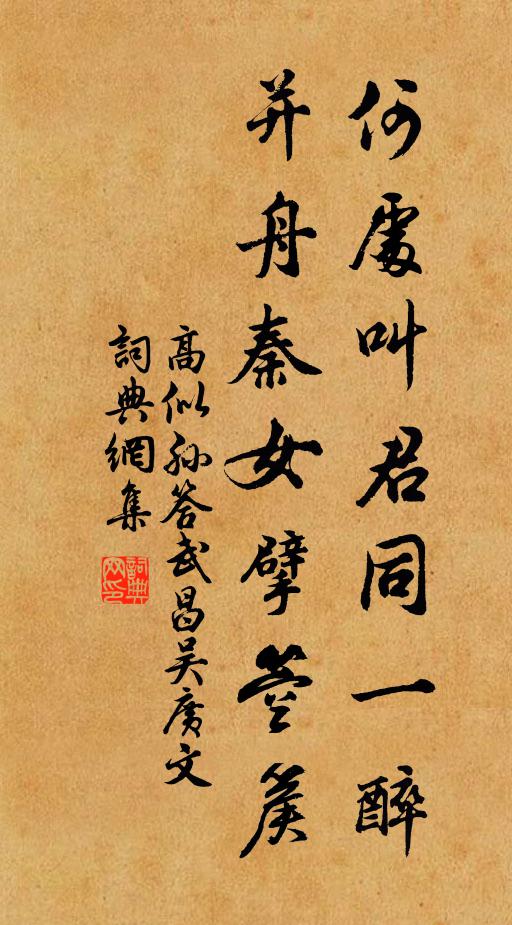 何處叫君同一醉
并舟秦女擘箜篌
高似孫答武昌吳廣文
詞典網集
詞典网印